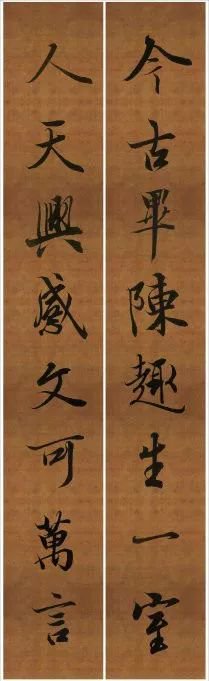 今古畢陳趣生一室
人天興感文可萬言